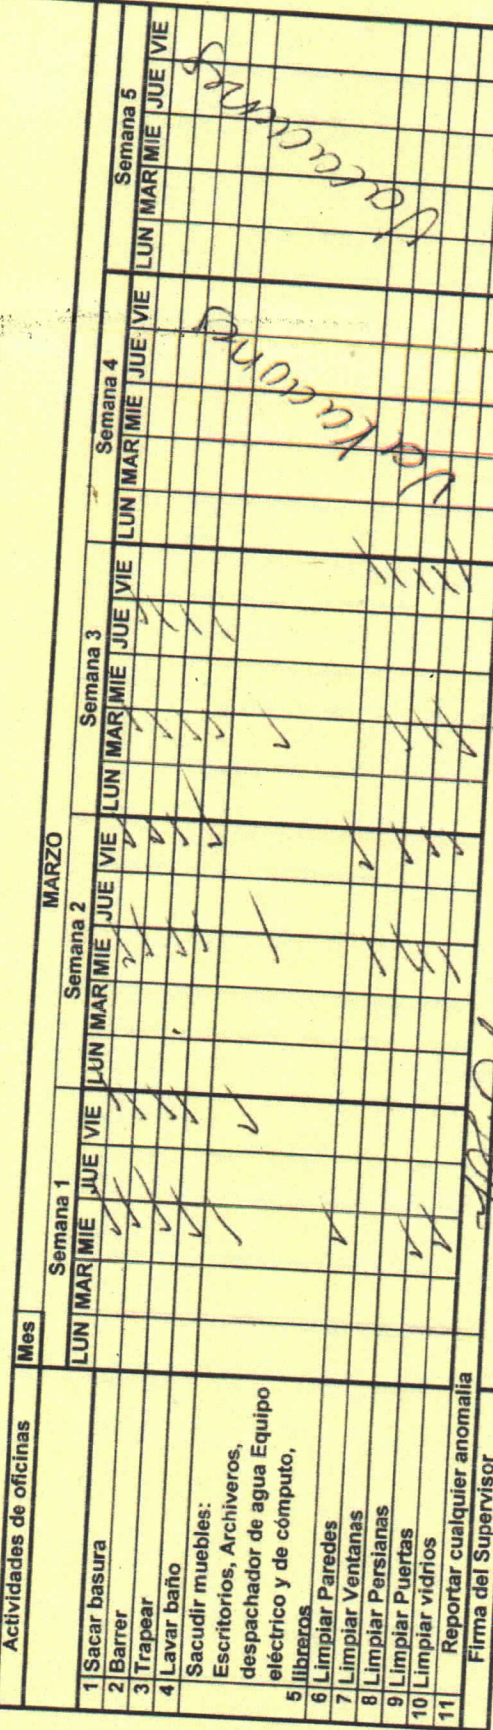 Actividades de oficinas
Mes MARZO
Semana 1 Semana 2 Semana 3 Semana 4 Semana 5
LUN MAR MIE JUE VIE LUN MAR MIE JUE VIE LUN MAR MIE JUE VIE LUN MAR MIE JUE VIE LUN MAR MIE JUE VIE
1 Sacar basura
2 Barrer
3 Trapear
4 Lavar baño
Sacudir muebles:
Escritorios, Archiveros,
despachador de agua Equipo
eléctrico y de cómputo,
5 libreros
6 Limpiar Paredes
7 Limpiar Ventanas
8 Limpiar Persianas
9 Limpiar Puertas
10 Limpiar vidrios
11 Reportar cualquier anomalia
Firma del Supervisor
Vakaciones
Vacaciones